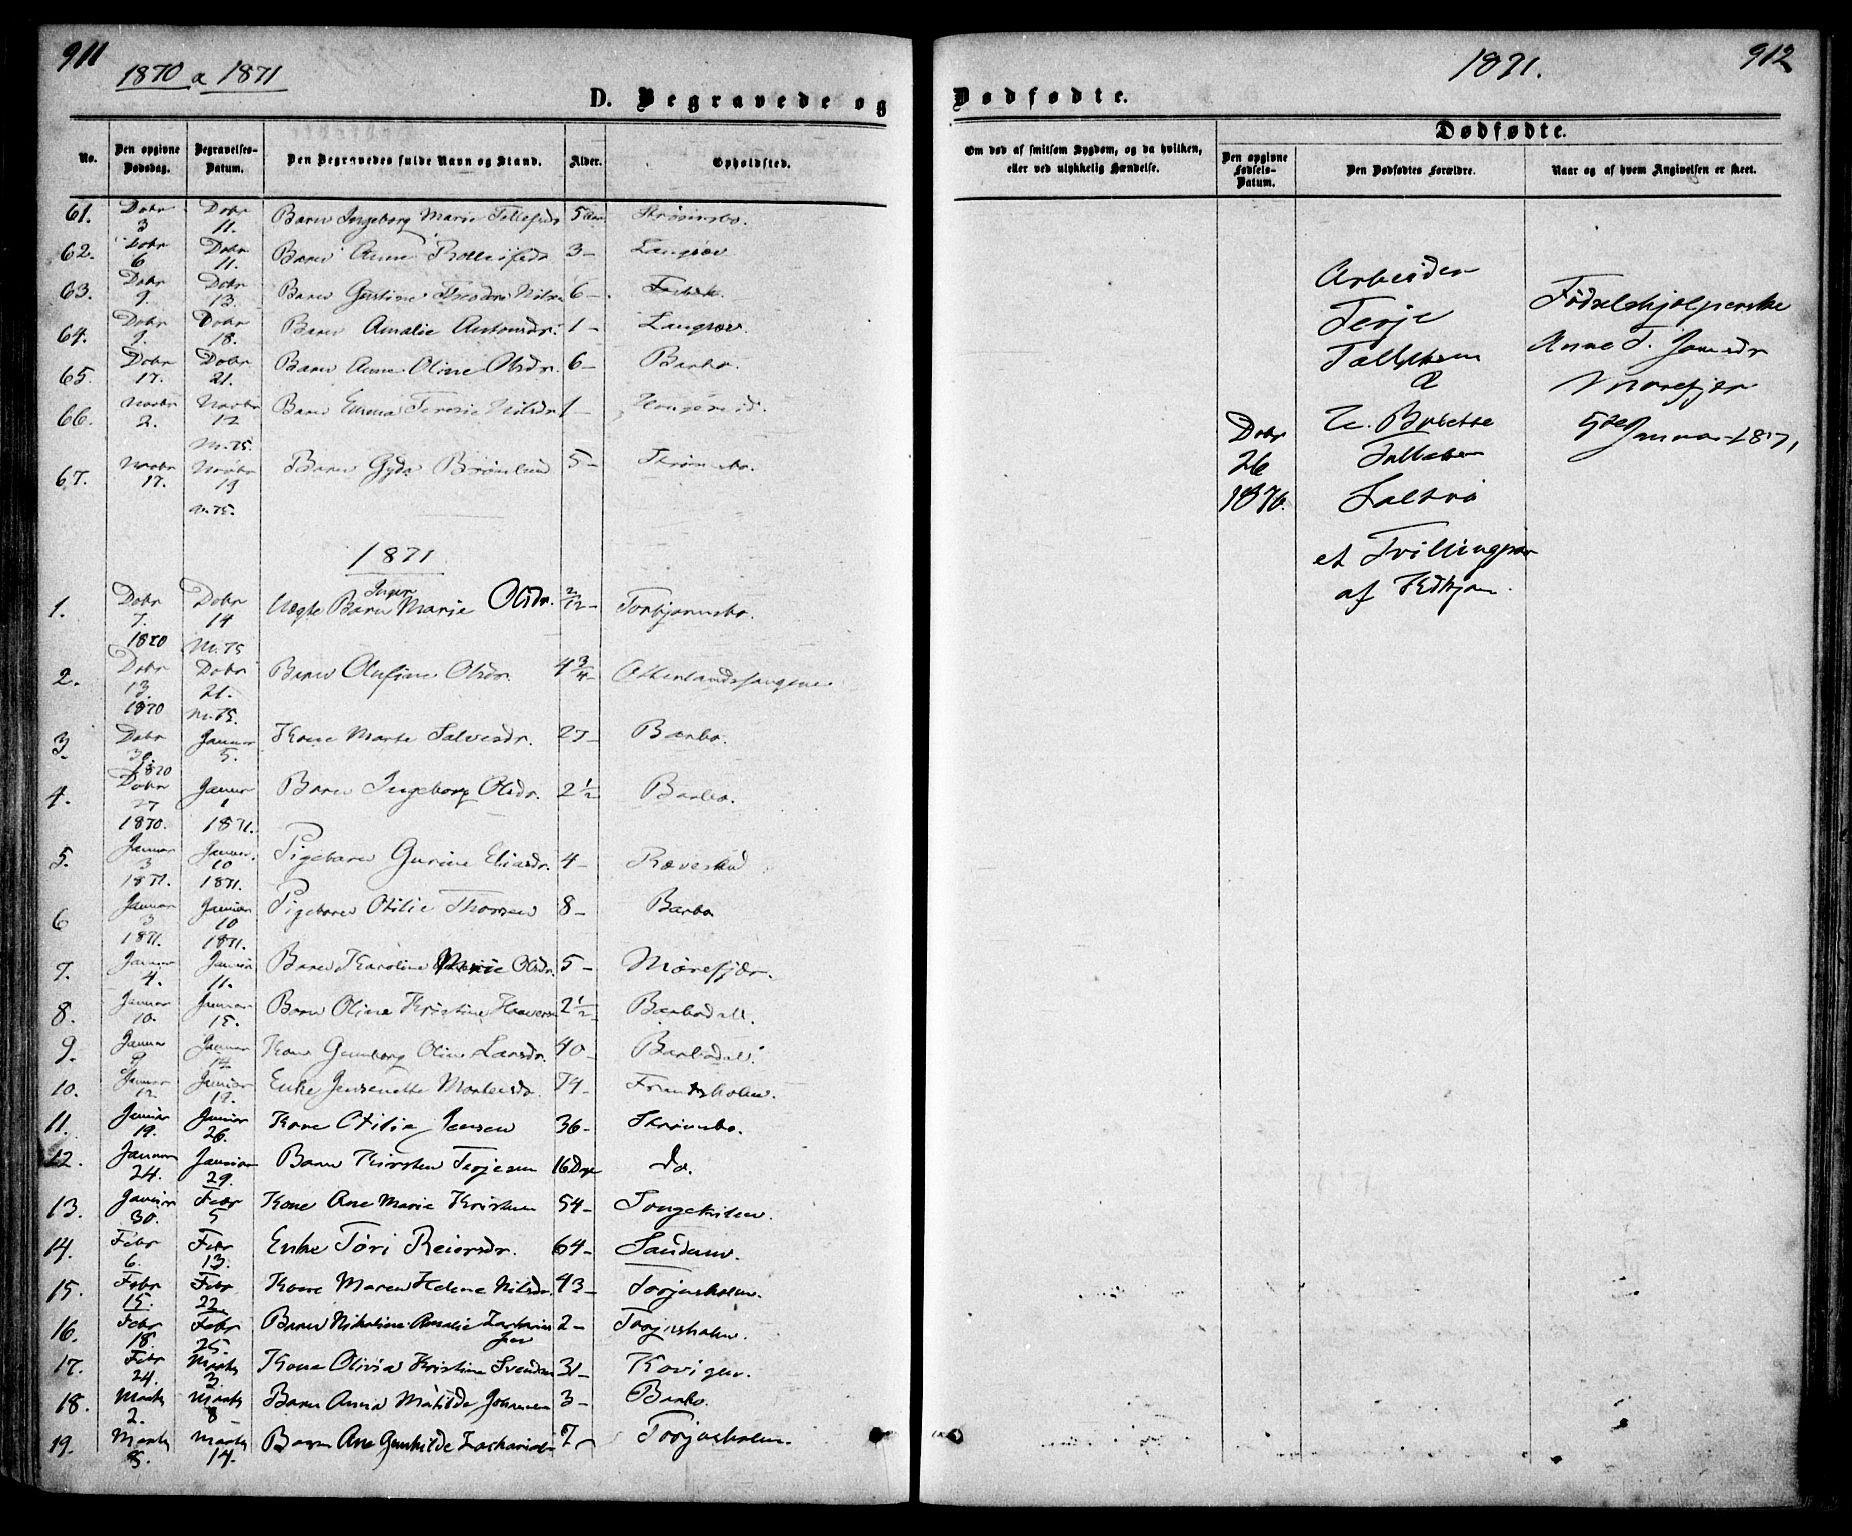 911
1870 & 1871
D. Begravede og
No. | Den opgivne Dødsdag. | Begravelses-Datum. | Den Begravedes fulde Navn og Stand. | Alder. | Opholdsted.
61. Dcbr 3 | Dcbr 11. | Barn Ingeborg Marie | 5 Aar | Strømsbo.
62. Dcbr 6 | Dcbr 11. | Barn Anne | 3 – | Langsæv
63. Dcbr 9. | Dcbr 13. | Barn | 6 –
64. Dcbr 9. | Dcbr 18. | Barn Amalie Antonsdr. | 1 – | Langsæv.
65. Dcbr 17. | Dcbr 21. | Barn Anne Oline Olsdr. | 6 – | Barbo.
66. Novbr 2. | Novbr 12 M. 75. | Barn Emma Teresie Nilsdr. | 1 –
67. Novbr 17. | Novbr 19 M. 75. | Barn Gyda | 5 – | Strømsbo.
1871
1. Dcbr 7. 1870 | Dcbr 14 M. 75 | Uægte Barn Inger Marie Olsdr. | 2/12 – | Torbjørnsbo.
2. Dcbr 13. 1870 | Dcbr 21. M. 75. | Barn Olufine Olsdr. | 4 3/4 –
3. Dcbr 30. 1870 | Januar 5. | Kone Marte Salvesdr. | 27 – | Barbo.
4. Dcbr 27 1870. | Januar 1 1871. | Barn Ingeborg Olsdr. | 2 1/2 | Barbo.
5. Januar 3 1871. | Januar 10 1871. | Pigebarn Gurine Eliasdr. | 4 –
6 Januar 3 1871. | Januar 10 1871. | Pigebarn Otilie Thorsen | 8 – | Barbo
7. Januar 4. | Januar 11. | Barn Karoline Marie Olsdr. | 5 – | Mørefjær.
8. Januar 10. | Januar 15. | Barn Oline Kristine | 2 1/2 – | Barbodal.
9. Januar 9 | Januar 14 | Kone Gunborg Oline Larsdr. | 40 – | Barbodal.
10. Januar 12. | Januar 19. | Enke Jensenette | 74 – | Frantsholm.
11. Januar 19. | Januar 26. | Kone Otilia Jensen | 36 – | Strømsbo.
12. Januar 24. | Januar 29. | Barn Kirsten Terjesen | 16 Dage | do.
13. Januar 30. | Febr 5 | Kone Ane Marie Kristensen | 54 – | Songekilen.
14. Febr 6. | Febr 13. | Enke Tori Reiersdr. | 64 –
15. Febr 15. | Febr 22 | Kone Maren Helene Nilsdr. | 43 – | Torjusholm.
16. Febr 18. | Febr 25. | Barn Nikoline Amalie Zachariasen | 2 – | Torjusholm.
17. Febr 24. | Marts 3. | Kone Olivia Kristine Svendsen | 31 – | Kovigen.
18. Marts 2. | Marts 8 – | Barn Anna Matilde Johansen | 3 – | Barbo.
19. Marts 8. | Marts 14. | Barn Ane Gunhilde Zachariasen | 7 – | Torjusholm.
1871.
912
Dødfødte.
Om død af smitsom Sygdom, og da hvilken, eller ved ulykkelig Hændelse.
Dødfødte.
Den opgivne Fødsels-Datum. | Den Dødfødtes Forældre. | Naar og af hvem Angivelsen er skeet.
Dcbr
26
1870.
Arbeider
Terje
Tallaksen
&
H. Bolette
Tallaksen
Saltrø
et Tvillingpar
af Kidkjøn.
Fødselshjelperske
Anne T. Jonsdr
Mørefjær
5te Januar 1871,